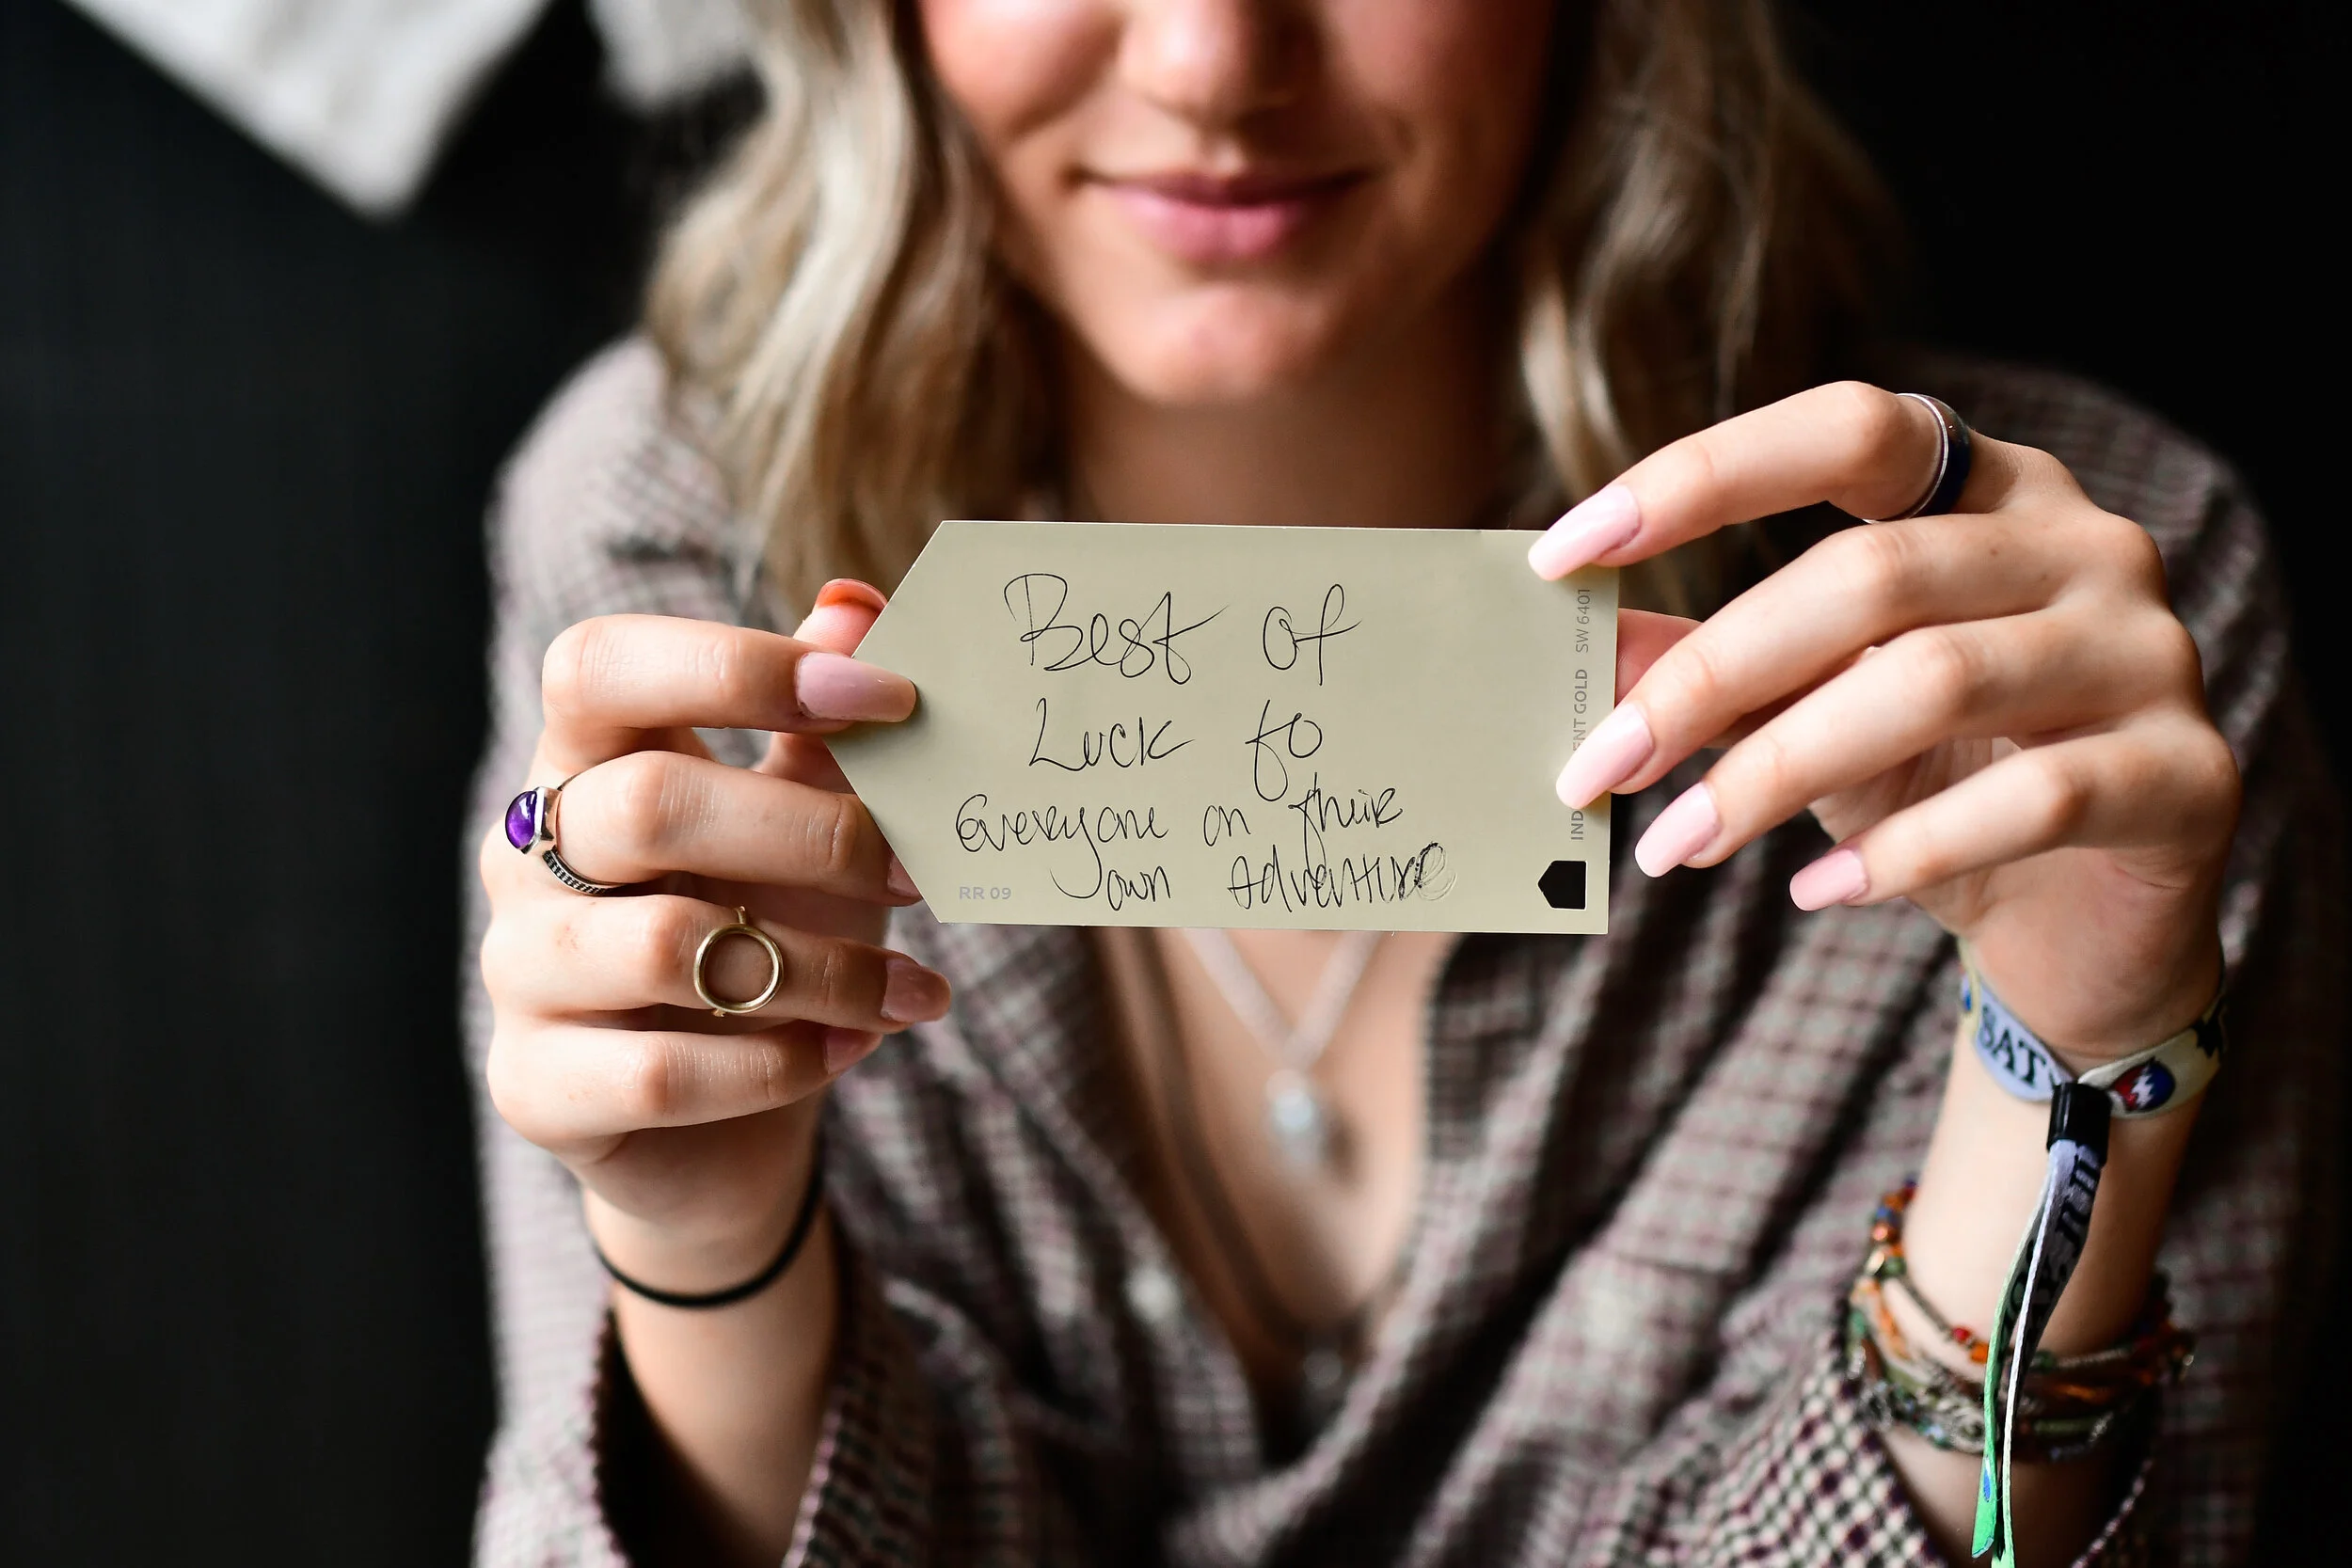 Best of
Luck to
Everyone on their
own Adventure
RR 09
SW 6401
SAT